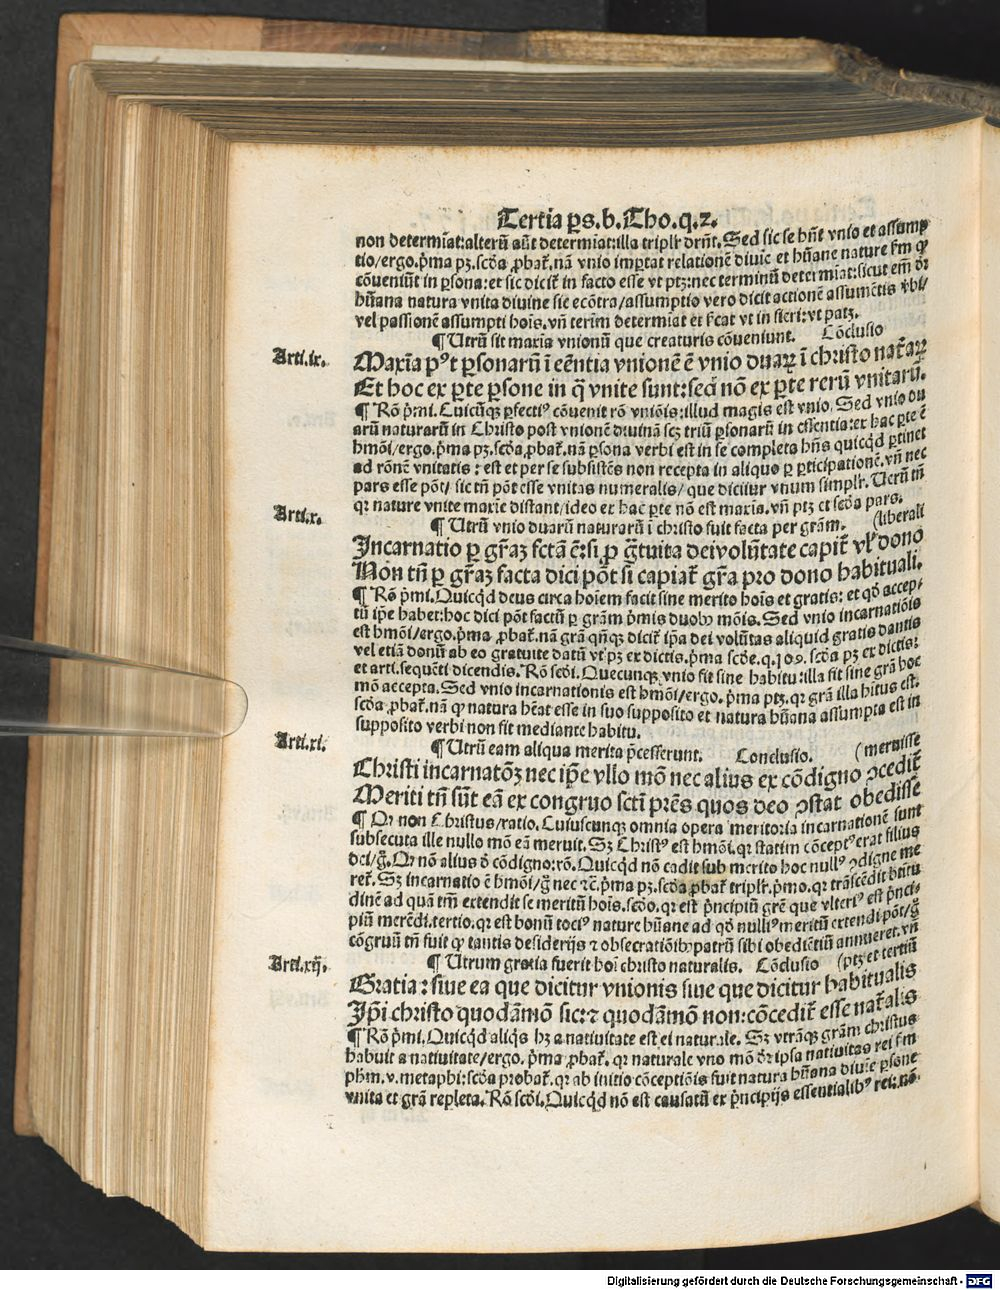 Tertia ꝑs.b.Tho.q.2.
non determiat:alterū aūt determiat:illa triplr drn̄t. Sed sic se hn̄t vnio et assump
tio/ergo.p̄ma pꝫ.scd̄a ꝓbat̄.nā vnio imꝑtat relationē diuie et hūane nature
cōueniūt in ꝑsona:et sic dicit̄ in facto esse vt ptꝫ:nec terminū determiat:sicut em̄
hūana natura vnita diuine sic ecōtra/assumptio vero dicit actionē assumētis
vel passionē assumpti hois.vn̄ terim determiat et ſcat vt in fieri:vt patꝫ.
¶ Utrū sit maxia vnionū que creaturis cōueniunt. Cōclusio
Arti.ix. Maxīa pꝰt ꝑsonarū ī eēntia vnionē ē vnio duaꝝ ī christo nat̄aꝝ
Et hoc ex ꝑte ꝑsone in q̄ vnite sunt:sed nō ex ꝑte rerū vnitarū.
¶ Rō p̄mi. Cuicūqꝫ ꝑfectiꝰ cōuenit rō vniōis:illud magis est vnio. Sed vnio du
arū naturarū in Christo post vnionē diuinā scꝫ triū ꝑsonarū in essentia:ex hac ꝑte ē
hmōi/ergo.p̄ma pꝫ.scd̄a ꝓbat̄.nā ꝑsona verbi est in se completa hn̄s quicqd ꝑtinet
ad rōnē vnitatis : est et per se subsistēs non recepta in aliquo ꝑ ꝑticipationē.vn̄ nec
pars esse pōt/ sic tn̄ pōt esse vnitas numeralis/ que dicitur vnum simplr. Uerū tn̄
qꝛ nature vnite maxie distant/ideo ex hac ꝑte nō est maxia. vn̄ ptꝫ et scd̄a pars.
Arti.x. ¶ Utrū vnio duarū naturarū ī christo fuit facta per grām. (liberali
Incarnatio ꝑ grāꝫ fctā ē:si ꝑ gr̄tuita dei volūtate capit̄ vl̄ dono
Non tn̄ ꝑ grāꝫ facta dici pōt si capiat̄ grā pro dono habituali.
¶ Rō p̄mi. Quicqd deus circa hoīem facit sine merito hoīs et gratis: et qd̄ accep/
tū ip̄e habet:hoc dici pōt factū ꝑ grām p̄mis duobꝰ mōis. Sed vnio incarnatiōis
est hmōi/ergo.p̄ma ꝓbat̄.nā grā qn̄qꝫ dicit̄ ip̄a dei volūtas aliquid gratis dantis
vel etiā donū ab eo gratuite datū vt pꝫ ex dictis.p̄ma scd̄e.q.109. scd̄a pꝫ ex dictis:
et arti.sequēti dicendis. Rō scd̄i. Quecunqꝫ vnio fit sine habitu:illa fit sine grā hoc
mō accepta. Sed vnio incarnationis est hmōi/ergo. p̄ma ptꝫ.qꝛ grā illa hitus est.
scd̄a ꝓbat̄.nā qꝫ natura hēat esse in suo supposito et natura hūana assumpta est in
supposito verbi non fit mediante habitu.
Arti.xi. ¶ Utrū eam aliqua merita p̄cesserunt. Conclusio. (meruisse
Christi incarnatōꝫ nec ip̄e vllo mō nec alius ex cōdigno ꝯcedit̄
Meriti tn̄ sūt eā ex congruo scti p̄res quos deo ꝯstat obedisse
¶ Qꝛ non Christus/ratio. Cuiuscunqꝫ omnia opera meritoria incarnationē sunt
subsecuta ille nullo mō eā meruit. Sꝫ Christꝰ est hmōi.qꝛ statim cōceptꝰ erat filius
dei/g̊. Qꝛ nō alius d̄ cōdigno:rō. Quicqd nō cadit sub merito hoc nullꝰ ꝯdigne me
ret̄. Sꝫ incarnatio ē hmōi/g̊ nec ⁊c̄.p̄ma pꝫ.scd̄a ꝓbat̄ triplr̄.p̄mo.qꝛ trāscēdit btītu
dinē ad quā tm̄ extendit se meritū hoīs.scd̄o.qꝛ est p̄ncipiū grē que vlteriꝰ est p̄nci-
piū merēdi.tertio.qꝛ est bonū tociꝰ nature hūane ad qd̄ nulliꝰ meritū extendi pōt/g̊
cōgruū tn̄ fuit qꝫ tantis desiderijs ⁊ obsecratiōibꝰ patrū sibi obediētiū annueret.vn̄
Arti.xij. ¶ Utrum gratia fuerit hoī christo naturalis. Cōclusio (ptꝫ et tertiū
Gratia : siue ea que dicitur vnionis siue que dicitur habitualis
Ip̄i christo quodāmō sic:⁊ quodāmō non:cōcedit̄ esse nat̄alis
¶ Rō p̄mi. Quicqd aliqs hꝫ a natiuitate est ei naturale. Sꝫ vtrāqꝫ grām christus
habuit a natiuitate/ergo. p̄ma ꝓbat̄. qꝛ naturale vno mō dr̄ ipsa natiuitas rei ſm
phm.v.metaphi:scd̄a probat̄.qꝛ ab initio cōceptiōis fuit natura hūana diuīe ꝑsone
vnita et grā repleta. Rō scd̄i. Quicqd nō est causatū ex p̄ncipijs essentialibꝰ rei:nō.
Digitalisierung gefördert durch die Deutsche Forschungsgemeinschaft - DFG